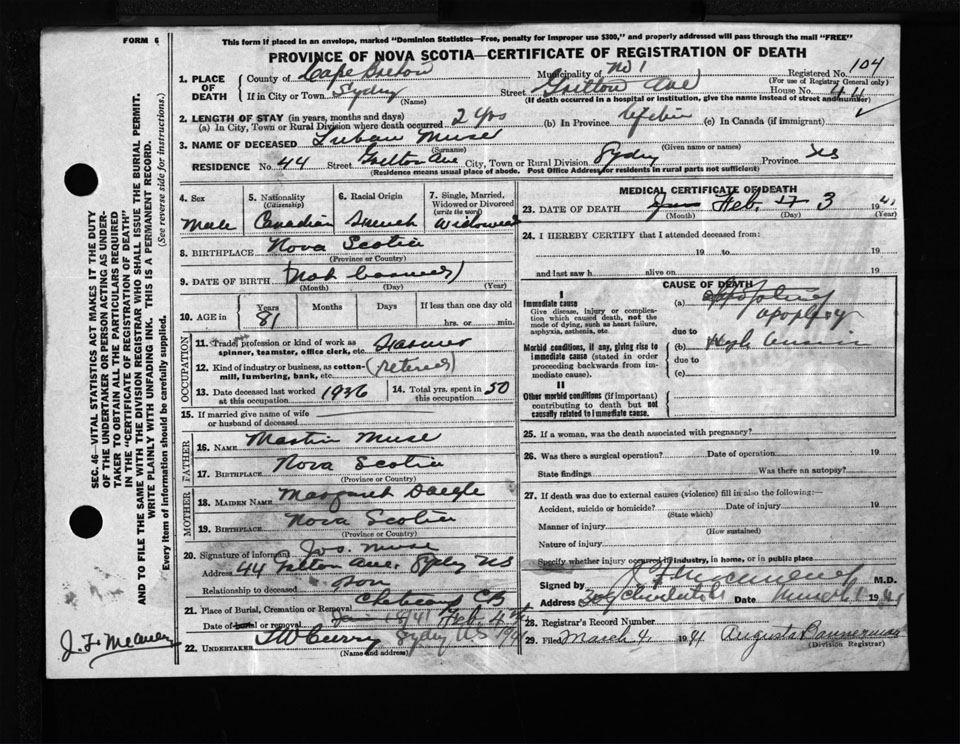 FORM 6
This form if placed in an envelope, marked "Dominion Statistics—Free, penalty for improper use $300," and properly addressed will pass through the mail "FREE"
PROVINCE OF NOVA SCOTIA—CERTIFICATE OF REGISTRATION OF DEATH
SEC. 46—VITAL STATISTICS ACT MAKES IT THE DUTY
OF THE UNDERTAKER OR PERSON ACTING AS UNDER-
TAKER TO OBTAIN ALL THE PARTICULARS REQUIRED
IN THE "CERTIFICATE OF REGISTRATION OF DEATH"
AND TO FILE THE SAME WITH THE DIVISION REGISTRAR WHO SHALL ISSUE THE BURIAL PERMIT.
WRITE PLAINLY WITH UNFADING INK. THIS IS A PERMANENT RECORD.
Every item of information should be carefully supplied. (See reverse side for instructions.)
1. PLACE OF DEATH
County of Cape Breton Municipality of No 1 Registered No. 104
(For use of Registrar General only)
If in City or Town Sydney Street Ave House No. 44
(Name) (If death occurred in a hospital or institution, give the name instead of street and number)
2. LENGTH OF STAY (in years, months and days)
(a) In City, Town or Rural Division where death occurred 2 yrs (b) In Province (c) In Canada (if immigrant)
3. NAME OF DECEASED Muse
(Surname) (Given name or names)
RESIDENCE No. 44 Street Ave City, Town or Rural Division Sydney Province NS
(Residence means usual place of abode. Post Office Address for residents in rural parts not sufficient)
4. Sex Male
5. Nationality (Citizenship) Canadian
6. Racial Origin French
7. Single, Married, Widowed or Divorced (write the word) Widowed
8. BIRTHPLACE Nova Scotia
(Province or Country)
9. DATE OF BIRTH (Not
(Month) (Day) (Year)
10. AGE in Years 81 Months Days If less than one day old hrs. or min.
OCCUPATION
11. Trade, profession or kind of work as spinner, teamster, office clerk, etc. Farmer
12. Kind of industry or business, as cotton-mill, lumbering, bank, etc. (retired)
13. Date deceased last worked at this occupation 1936
14. Total yrs. spent in this occupation 50
15. If married give name of wife or husband of deceased
FATHER
16. NAME Martin Muse
17. BIRTHPLACE Nova Scotia
(Province or Country)
MOTHER
18. MAIDEN NAME Margaret Daigle
19. BIRTHPLACE Nova Scotia
(Province or Country)
20. Signature of informant Jos. Muse
Address 44 Ave, Sydney NS
Relationship to deceased son
21. Place of Burial, Cremation or Removal CB
Date of burial or removal Jan 1941 Feb. 4th
22. UNDERTAKER TW Curry Sydney NS 1941
(Name and address)
MEDICAL CERTIFICATE OF DEATH
23. DATE OF DEATH Jan Feb. 17 3 1941
(Month) (Day) (Year)
24. I HEREBY CERTIFY that I attended deceased from:
19 to 19
and last saw h alive on 19
CAUSE OF DEATH
I
Immediate cause
Give disease, injury or complication which caused death, not the mode of dying, such as heart failure, asphyxia, asthenia, etc.
(a) apoplexy
due to
Morbid conditions, if any, giving rise to immediate cause (stated in order proceeding backwards from immediate cause).
(b) High
due to
(c)
II
Other morbid conditions (if important) contributing to death but not causally related to immediate cause.
25. If a woman, was the death associated with pregnancy?
26. Was there a surgical operation? Date of operation 19
State findings Was there an autopsy?
27. If death was due to external causes (violence) fill in also the following:—
Accident, suicide or homicide? Date of injury 19
(State which)
Manner of injury
(How sustained)
Nature of injury
Specify whether injury occurred in industry, in home, or in public place
Signed by M.D.
Address Date March 1 1941
28. Registrar's Record Number
29. Filed March 4, 1941 Augusta Bannerman
(Division Registrar)